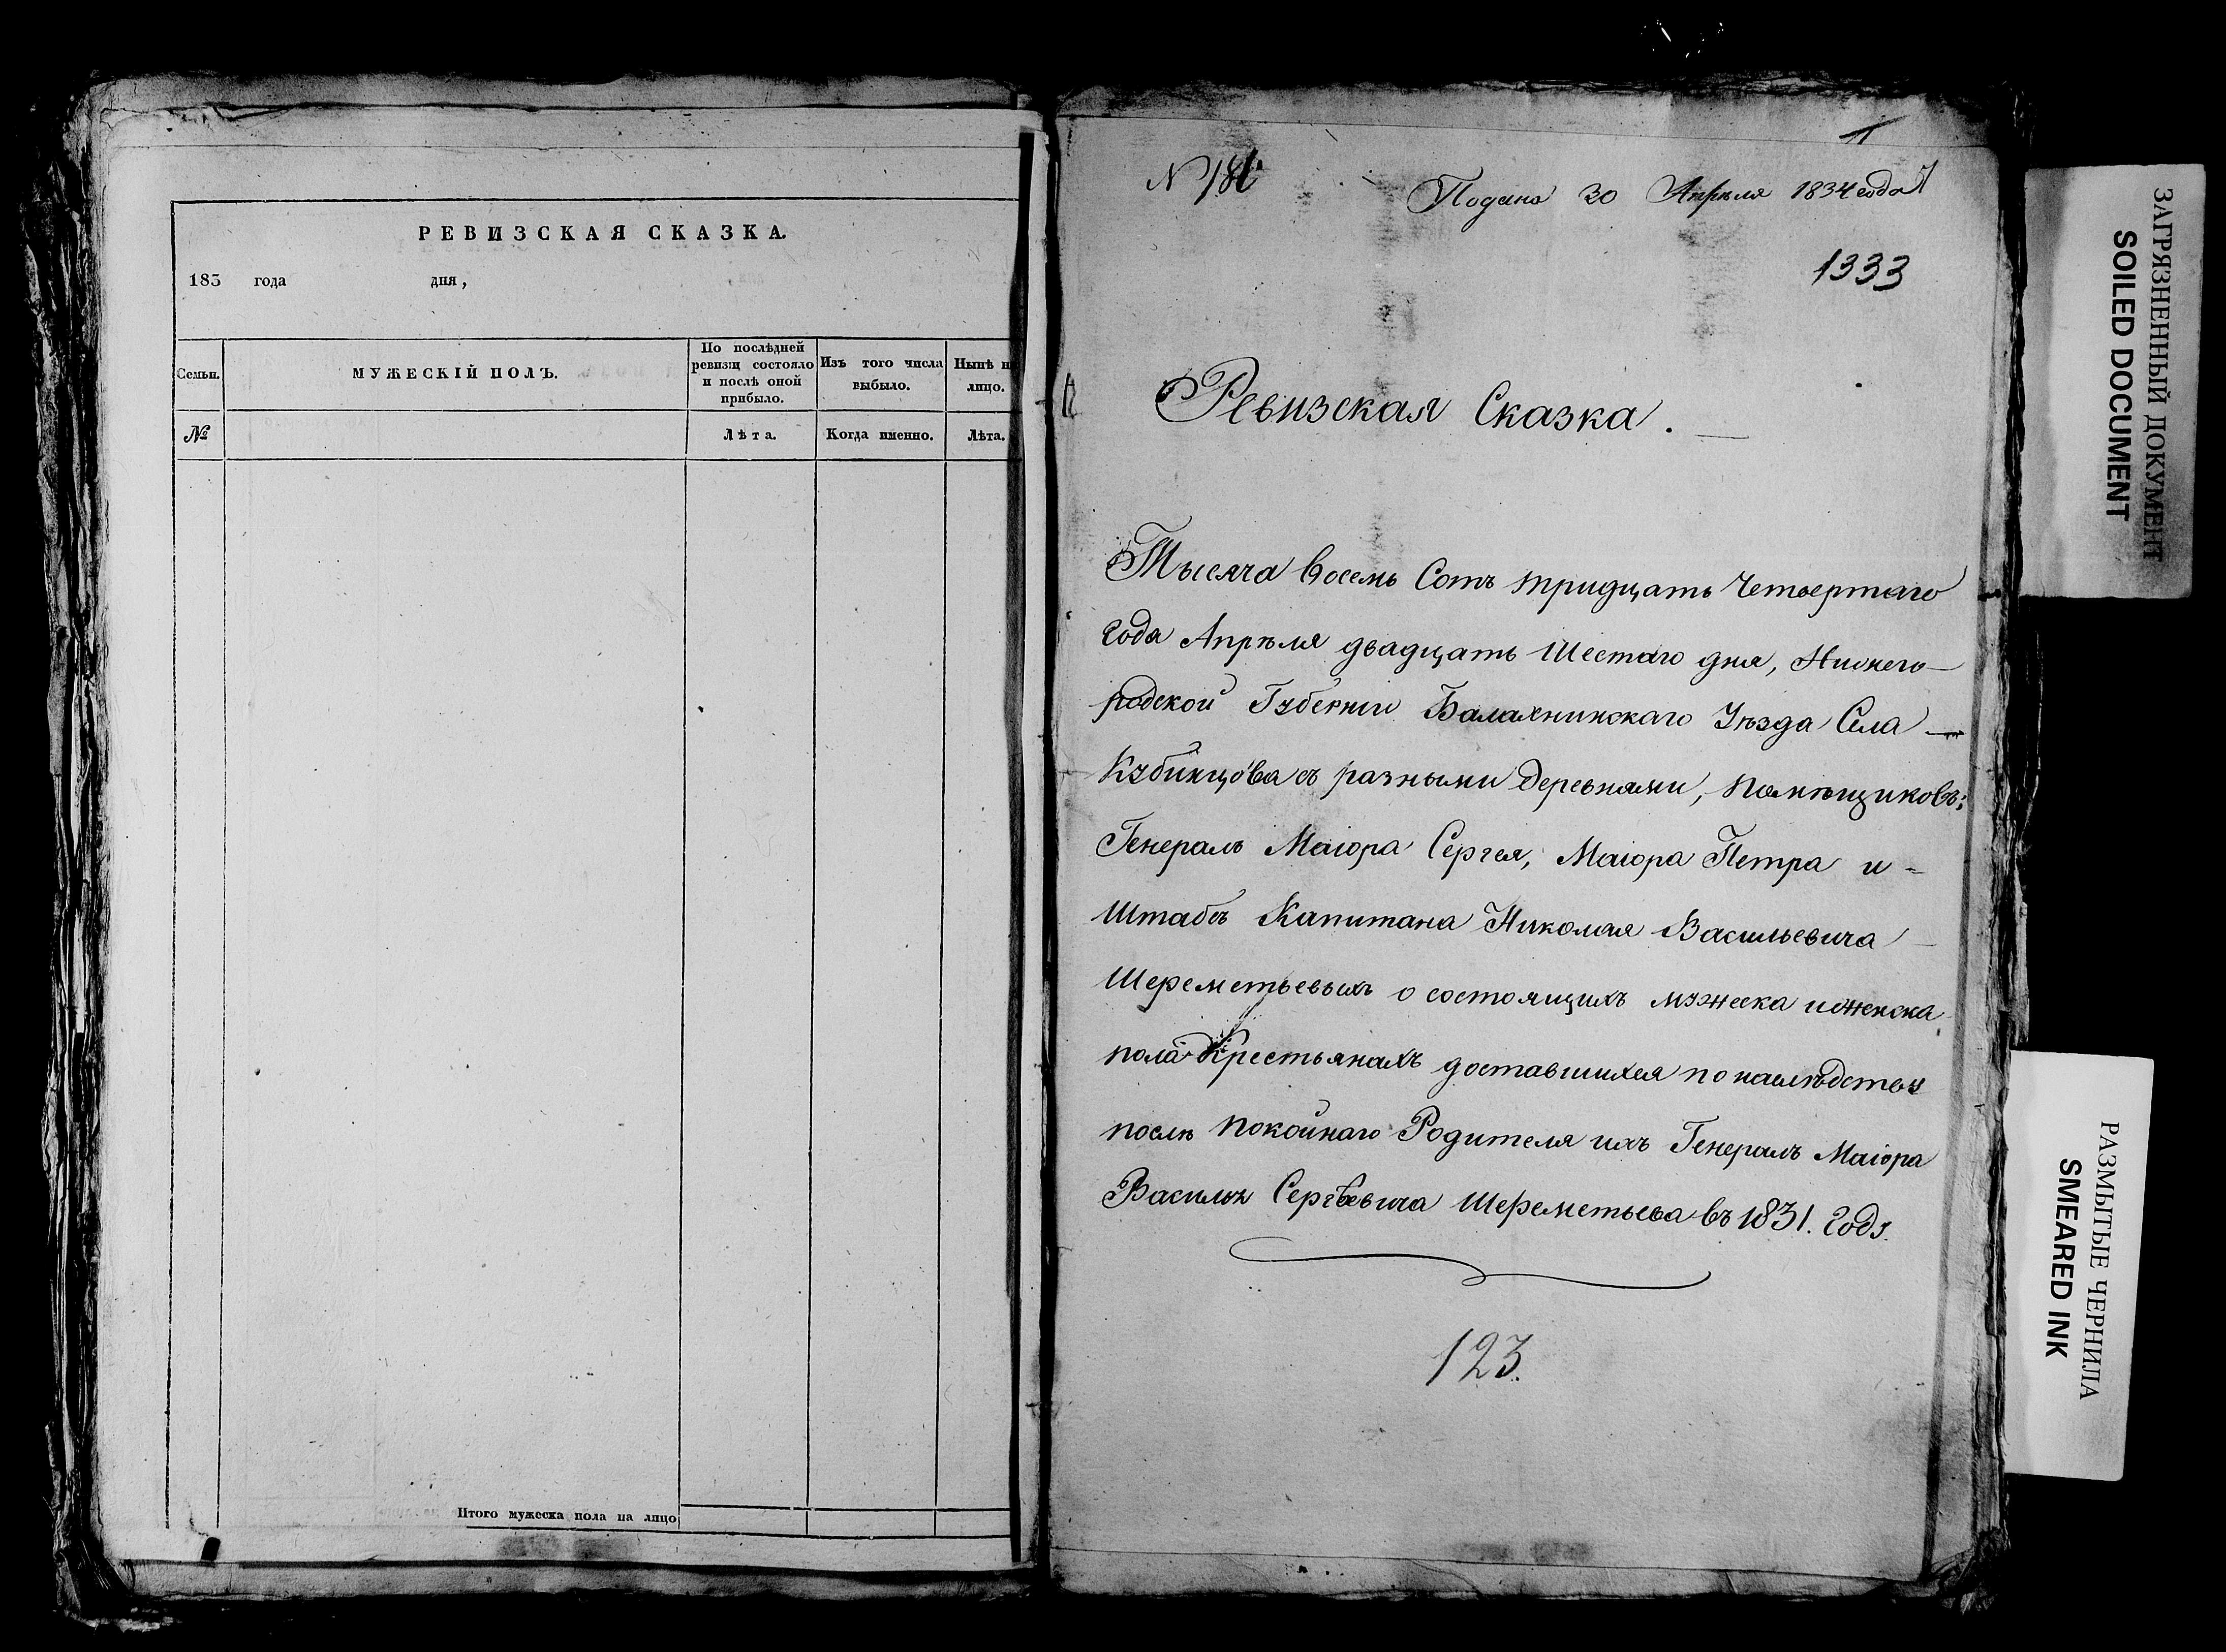 РЕВИЗСКАЯ СКАЗКА.
183 года дня,
Семьи.
МУЖЕСКІЙ ПОЛЪ.
По послѣдней
ревизіи состояло
и послѣ оной
прибыло.
Изъ того числа
выбыло.
Нынѣ н
лицо.
№
Лѣта.
Когда именно.
Лѣта.
Итого мужеска пола на лицо
Подана 30 Апрѣля 1834 года
1333
Ревизская Сказка.
Тысяча восемь Сотъ тридцать Четвертаго
Года Апрѣля двадцать Шестаго дня, Нижего-
родской Губерніи Балахнинскаго Уѣзда Села
Кубинцова съ разными деревнями, помѣщиковъ:
Генералъ Маіора Сергея, Маіора Петра и
Штабсъ Капитана Николая Васильевича
Шереметьевыхъ о состоящихъ мужеска и женска
пола Крестьянахъ доставшихся по наслѣдству
послѣ покойнаго Родителя ихъ Генералъ Маіора
Василья Сергѣевича Шереметьева въ 1831. Году.
123.
ЗАГРЯЗНЕННЫЙ ДОКУМЕНТ
SOILED DOCUMENT
РАЗМЫТЫЕ ЧЕРНИЛА
SMEARED INK